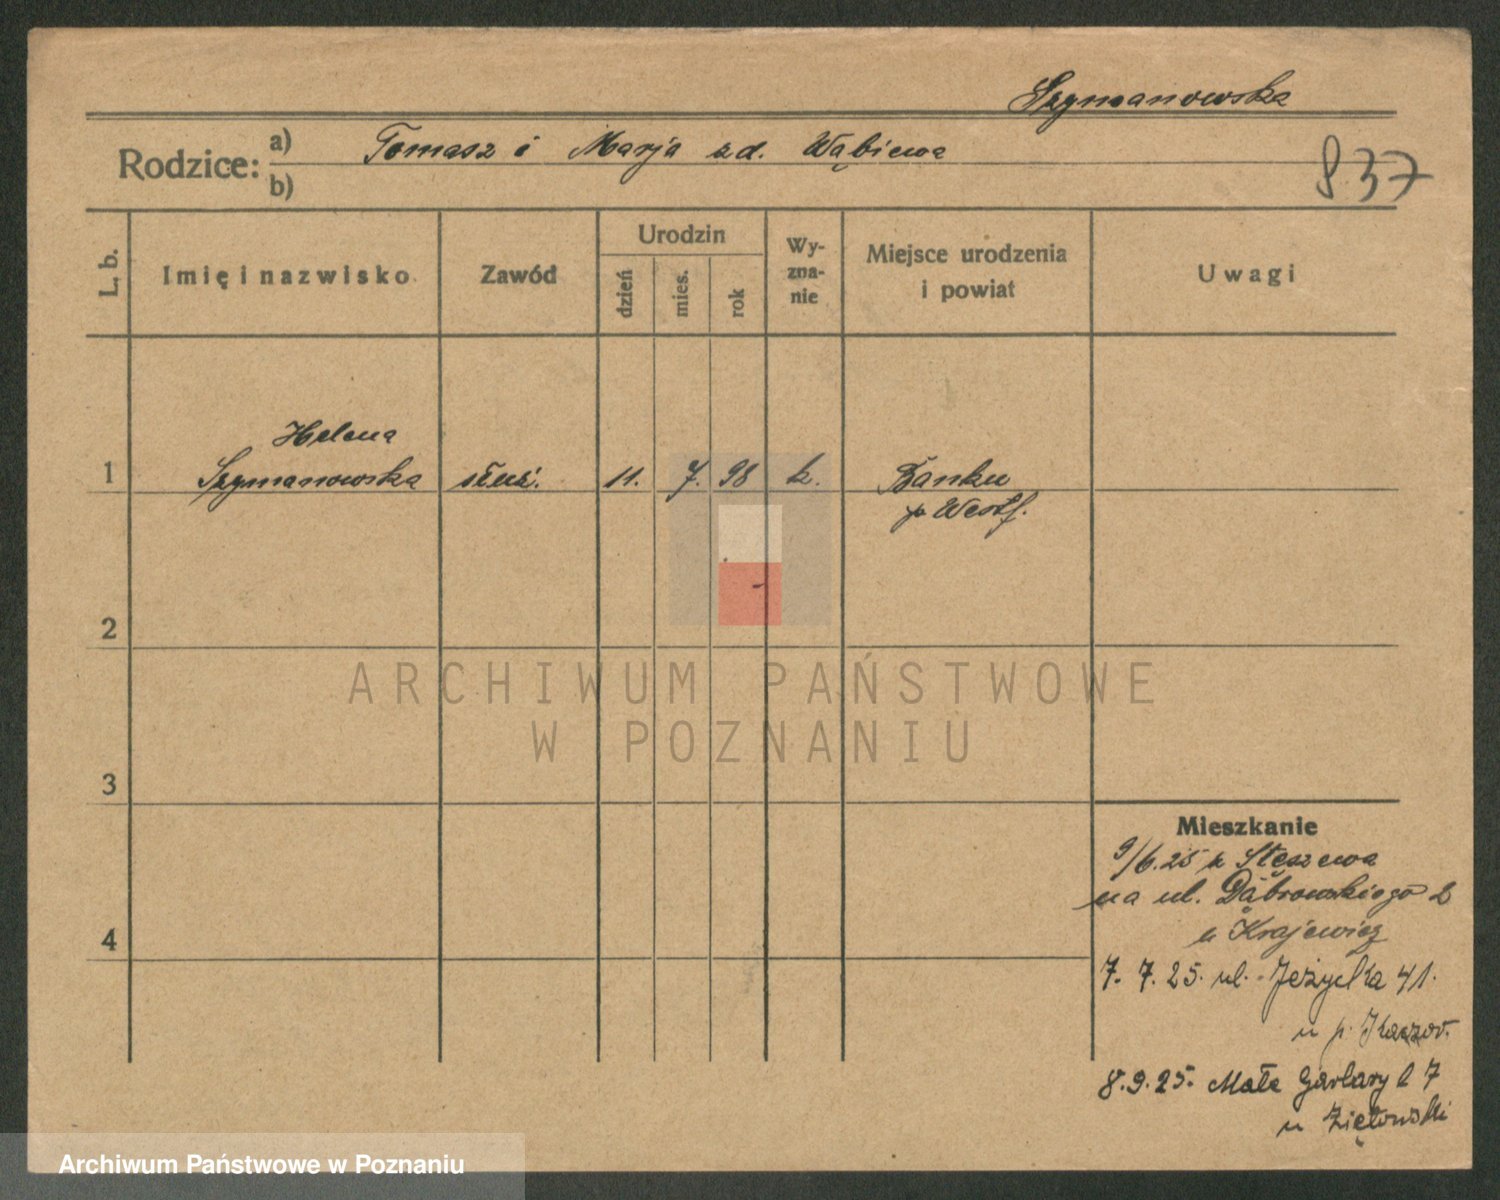 Szymanowska
Rodzice: a) Tomasz i Marja zd. Wąbiewa
b)
837
L. b.
Imię i nazwisko
Zawód
Urodzin
dzień
mies.
rok
Wy-
zna-
nie
Miejsce urodzenia
i powiat
Uwagi
Helena
1 Szymanowska służ. 11. 7. 98 k. Banku
p Westf.
2
ARCHIWUM PAŃSTWOWE
W POZNANIU
3
Mieszkanie
9/6.25 z Stęszewa
na ul. Dąbrowskiego 2
u Krajewicz
4
7. 7. 25. ul. Jeżycka 41.
u p.
8.9.25. Małe Garbary 7
u Ziętowski
Archiwum Państwowe w Poznaniu